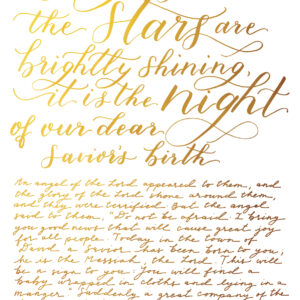 the stars are
brightly shining,
it is the night
of our dear
Savior's birth
An angel of the Lord appeared to them, and
the glory of the Lord shone around them,
and they were terrified. But the angel
said to them, "Do not be afraid. I bring
you good news that will cause great joy
for all people. Today in the town of
David a Savior has been born to you;
he is the Messiah, the Lord. This will
be a sign to you: You will find a
baby wrapped in cloths and lying in a
manger." Suddenly a great company of the